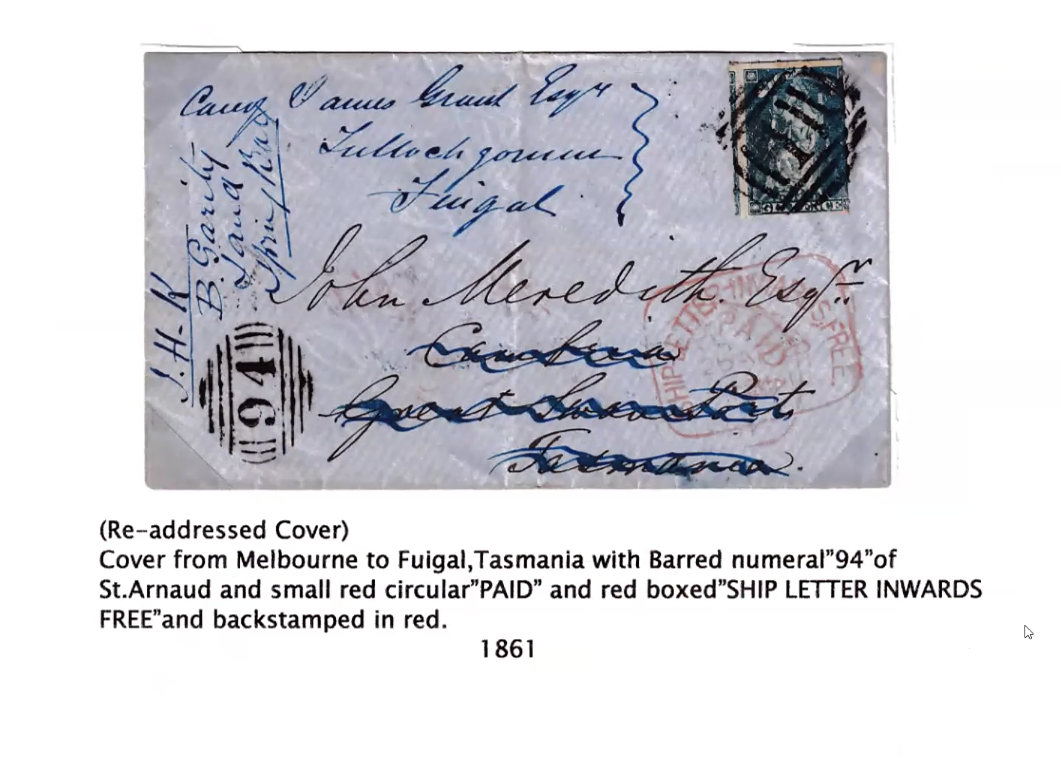 James Grant Esqre
Tullochgorum
Fingal
J. H-K
B. Garity
Land
John Meredith. Esqre
Cambria
Great Swan Port
Tasmania.
94
SHIP LETTER INWARDS FREE
PAID
(Re-addressed Cover)
Cover from Melbourne to Fuigal,Tasmania with Barred numeral"94"of
St.Arnaud and small red circular"PAID" and red boxed"SHIP LETTER INWARDS
FREE"and backstamped in red.
1861